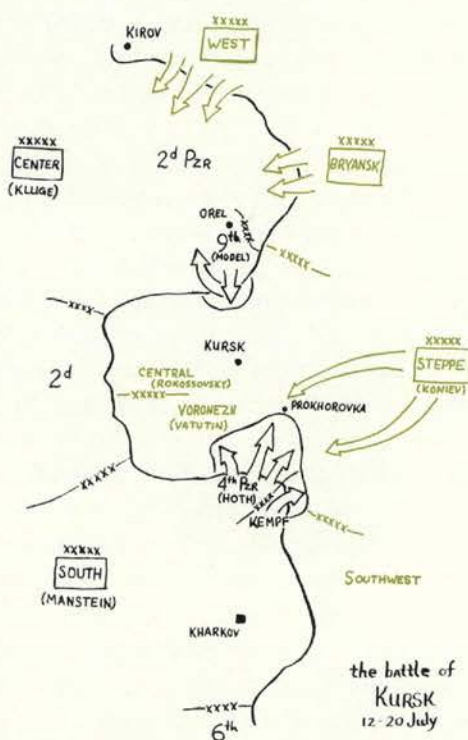 KIROV
XXXXX
WEST
2d PZR
XXXXX
CENTER
(KLUGE)
XXXXX
BRYANSK
OREL
XXXX
9th
(MODEL)
XXXXX
XXXX
KURSK
2d
CENTRAL
(ROKOSSOVSKY)
XXXXX
VORONEZH
(VATUTIN)
XXXXX
STEPPE
(KONIEV)
PROKHOROVKA
XXXXX
4th PZR
(HOTH)
XXXX
KEMPF
XXXXX
XXXXX
SOUTH
(MANSTEIN)
SOUTHWEST
KHARKOV
XXXX
6th
the battle of
KURSK
12-20 July